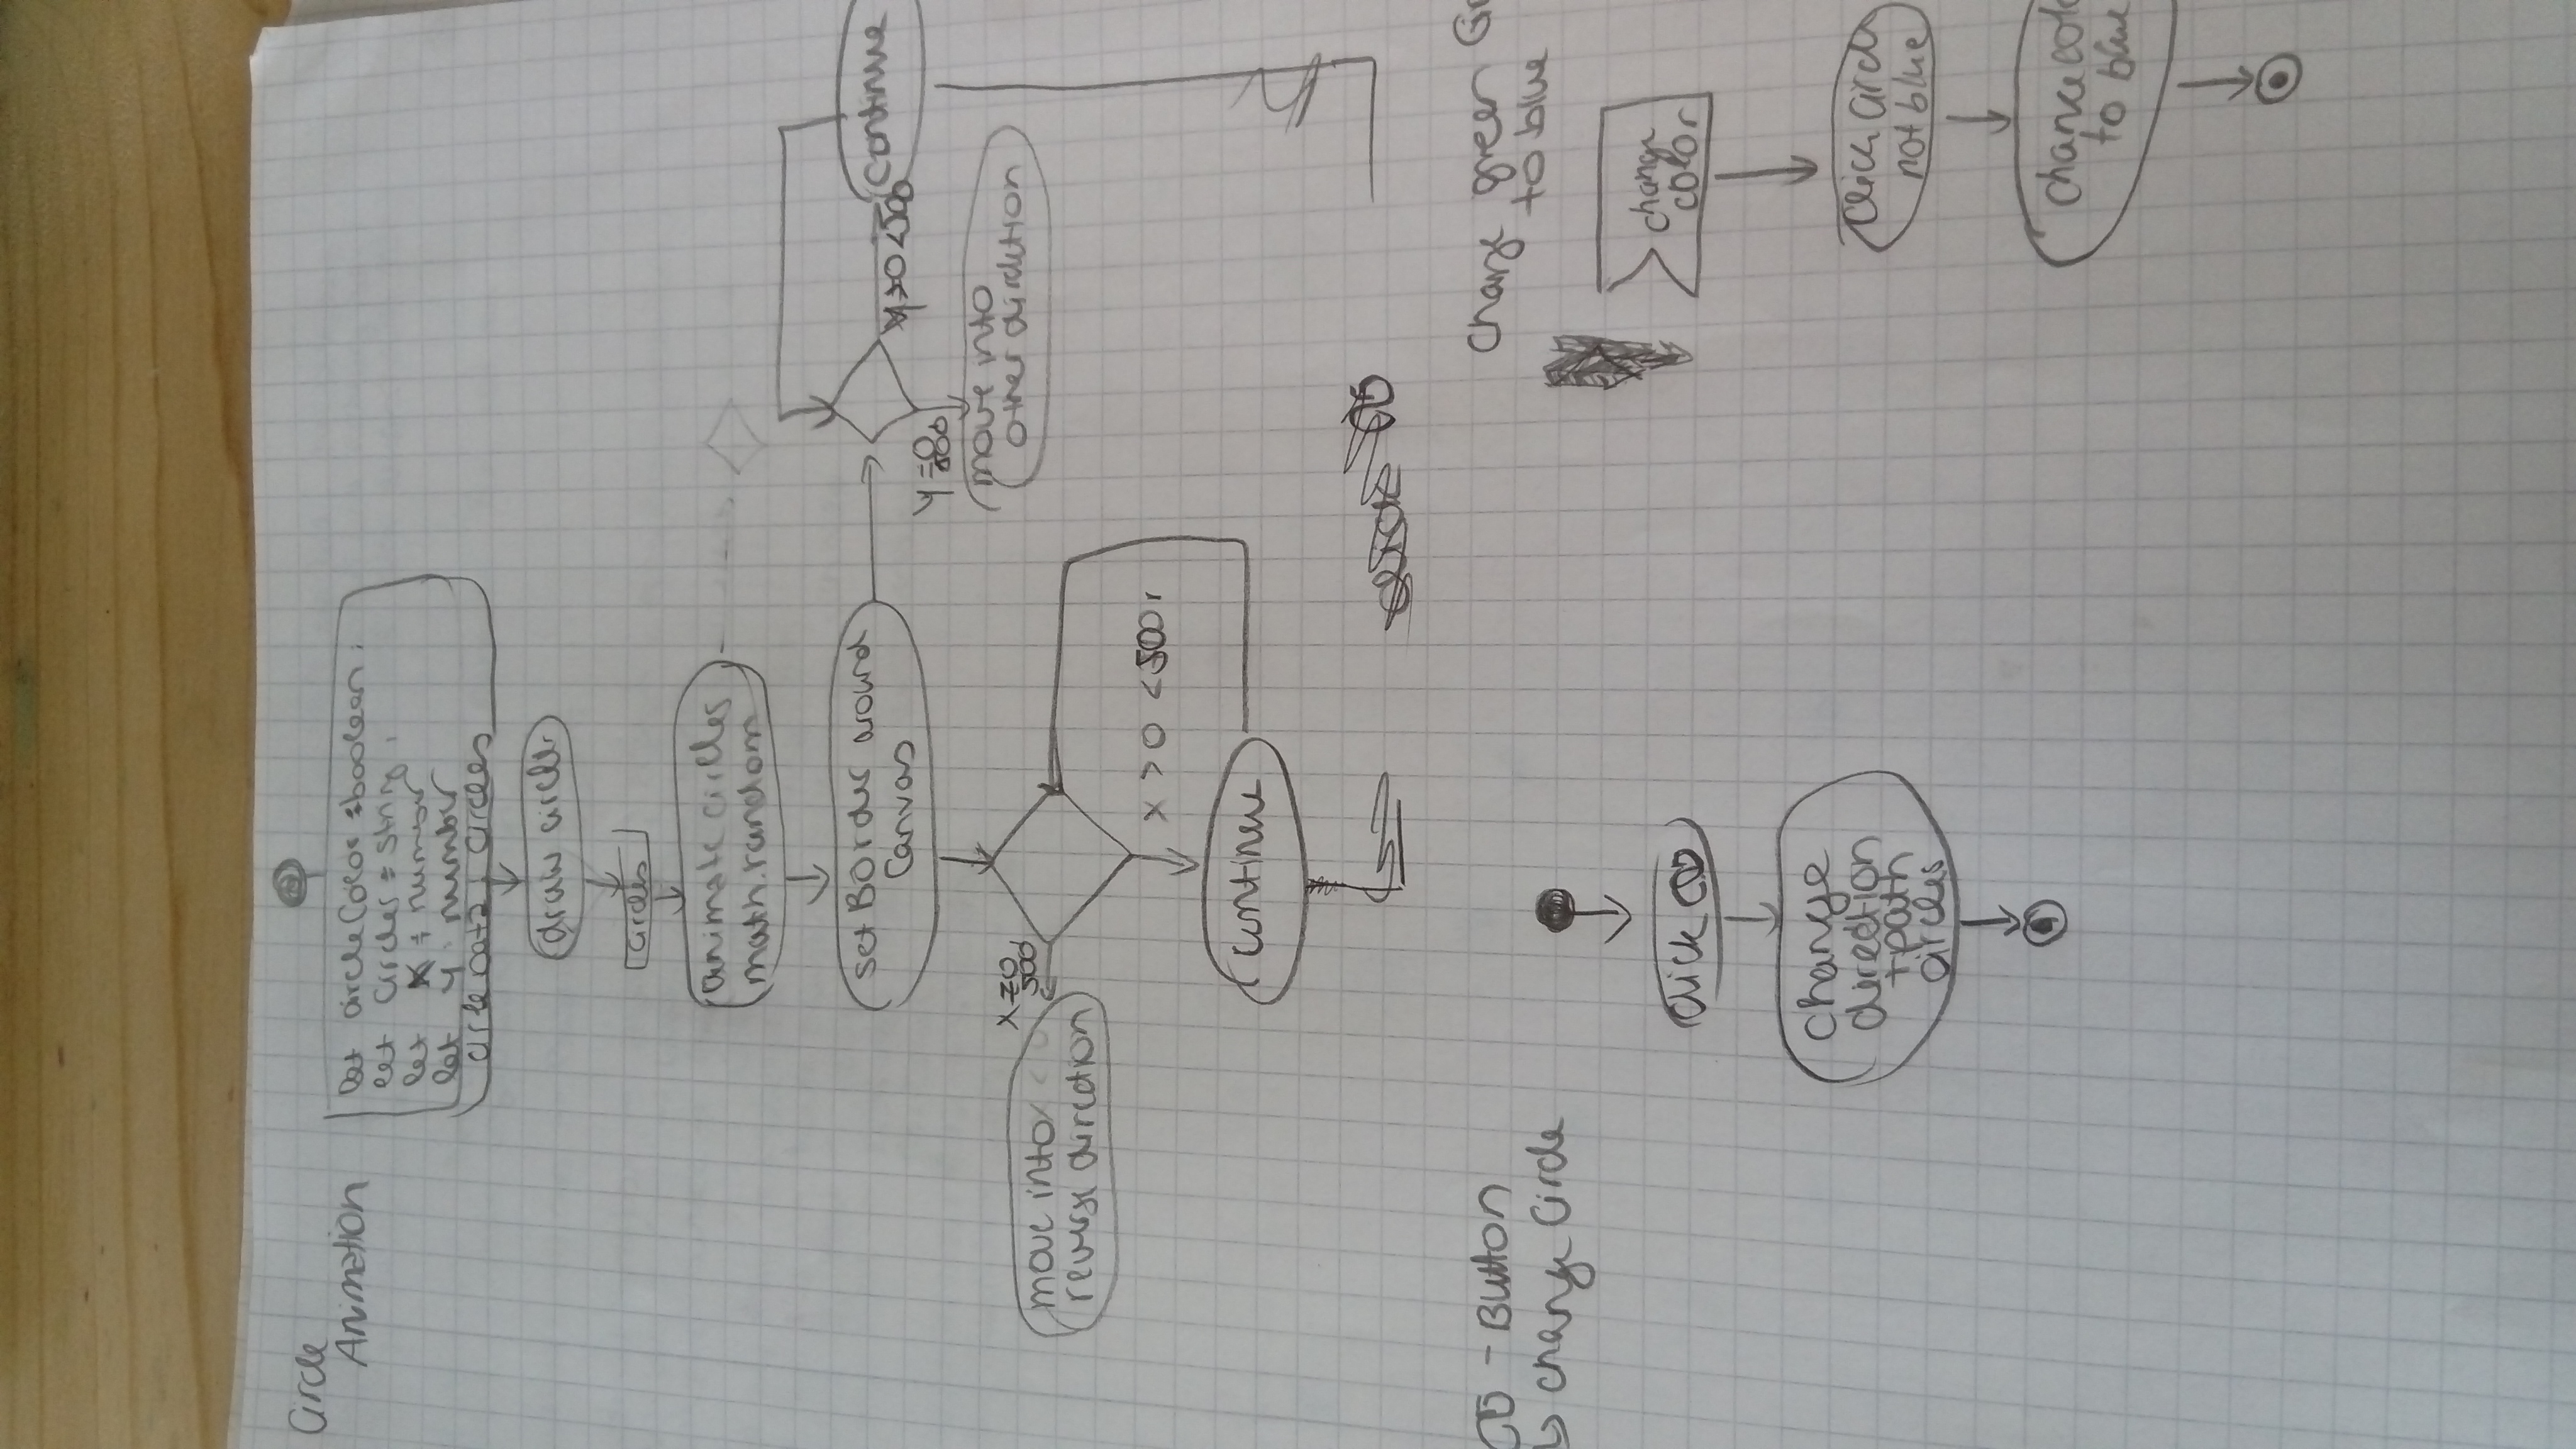 Circle
Animation
let circleColor : boolean ;
let Circles : string ;
let x : number
let y : number
Circles
draw circle
Circles
animate circles
math.random
set Border around
Canvas
y > 0 < 500
continue
y = 0
move into
other direction
x = 0
500
move into
reverse direction
x > 0 < 500
continue
- Button
↳ change Circle
click
change
direction
+ path
circles
Change green
to blue
change
color
click Circle
not blue
change
to blue